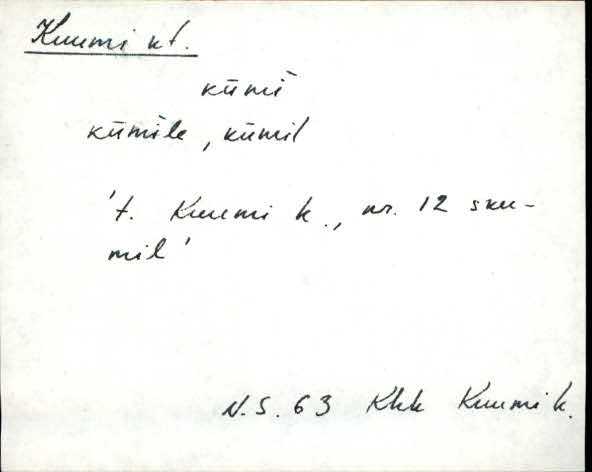 Kuumi kt.
kūmì
kūmile, kūmil
't. Kuumi k., nr. 12 sku-
mil'
N.S. 63 Khk Kuumi k.